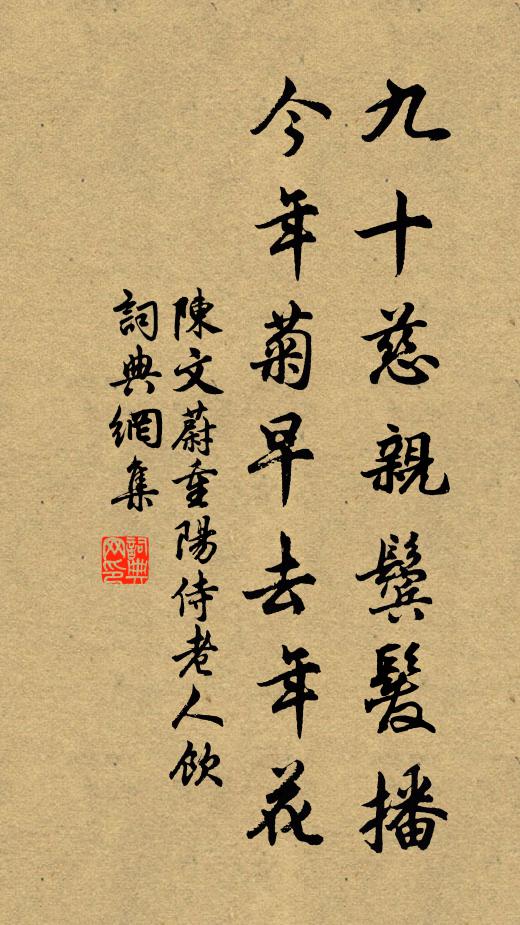 九十慈親鬢髮播
今年菊早去年花
陳文蔚重陽侍老人飲
詞典網集
詞典網印